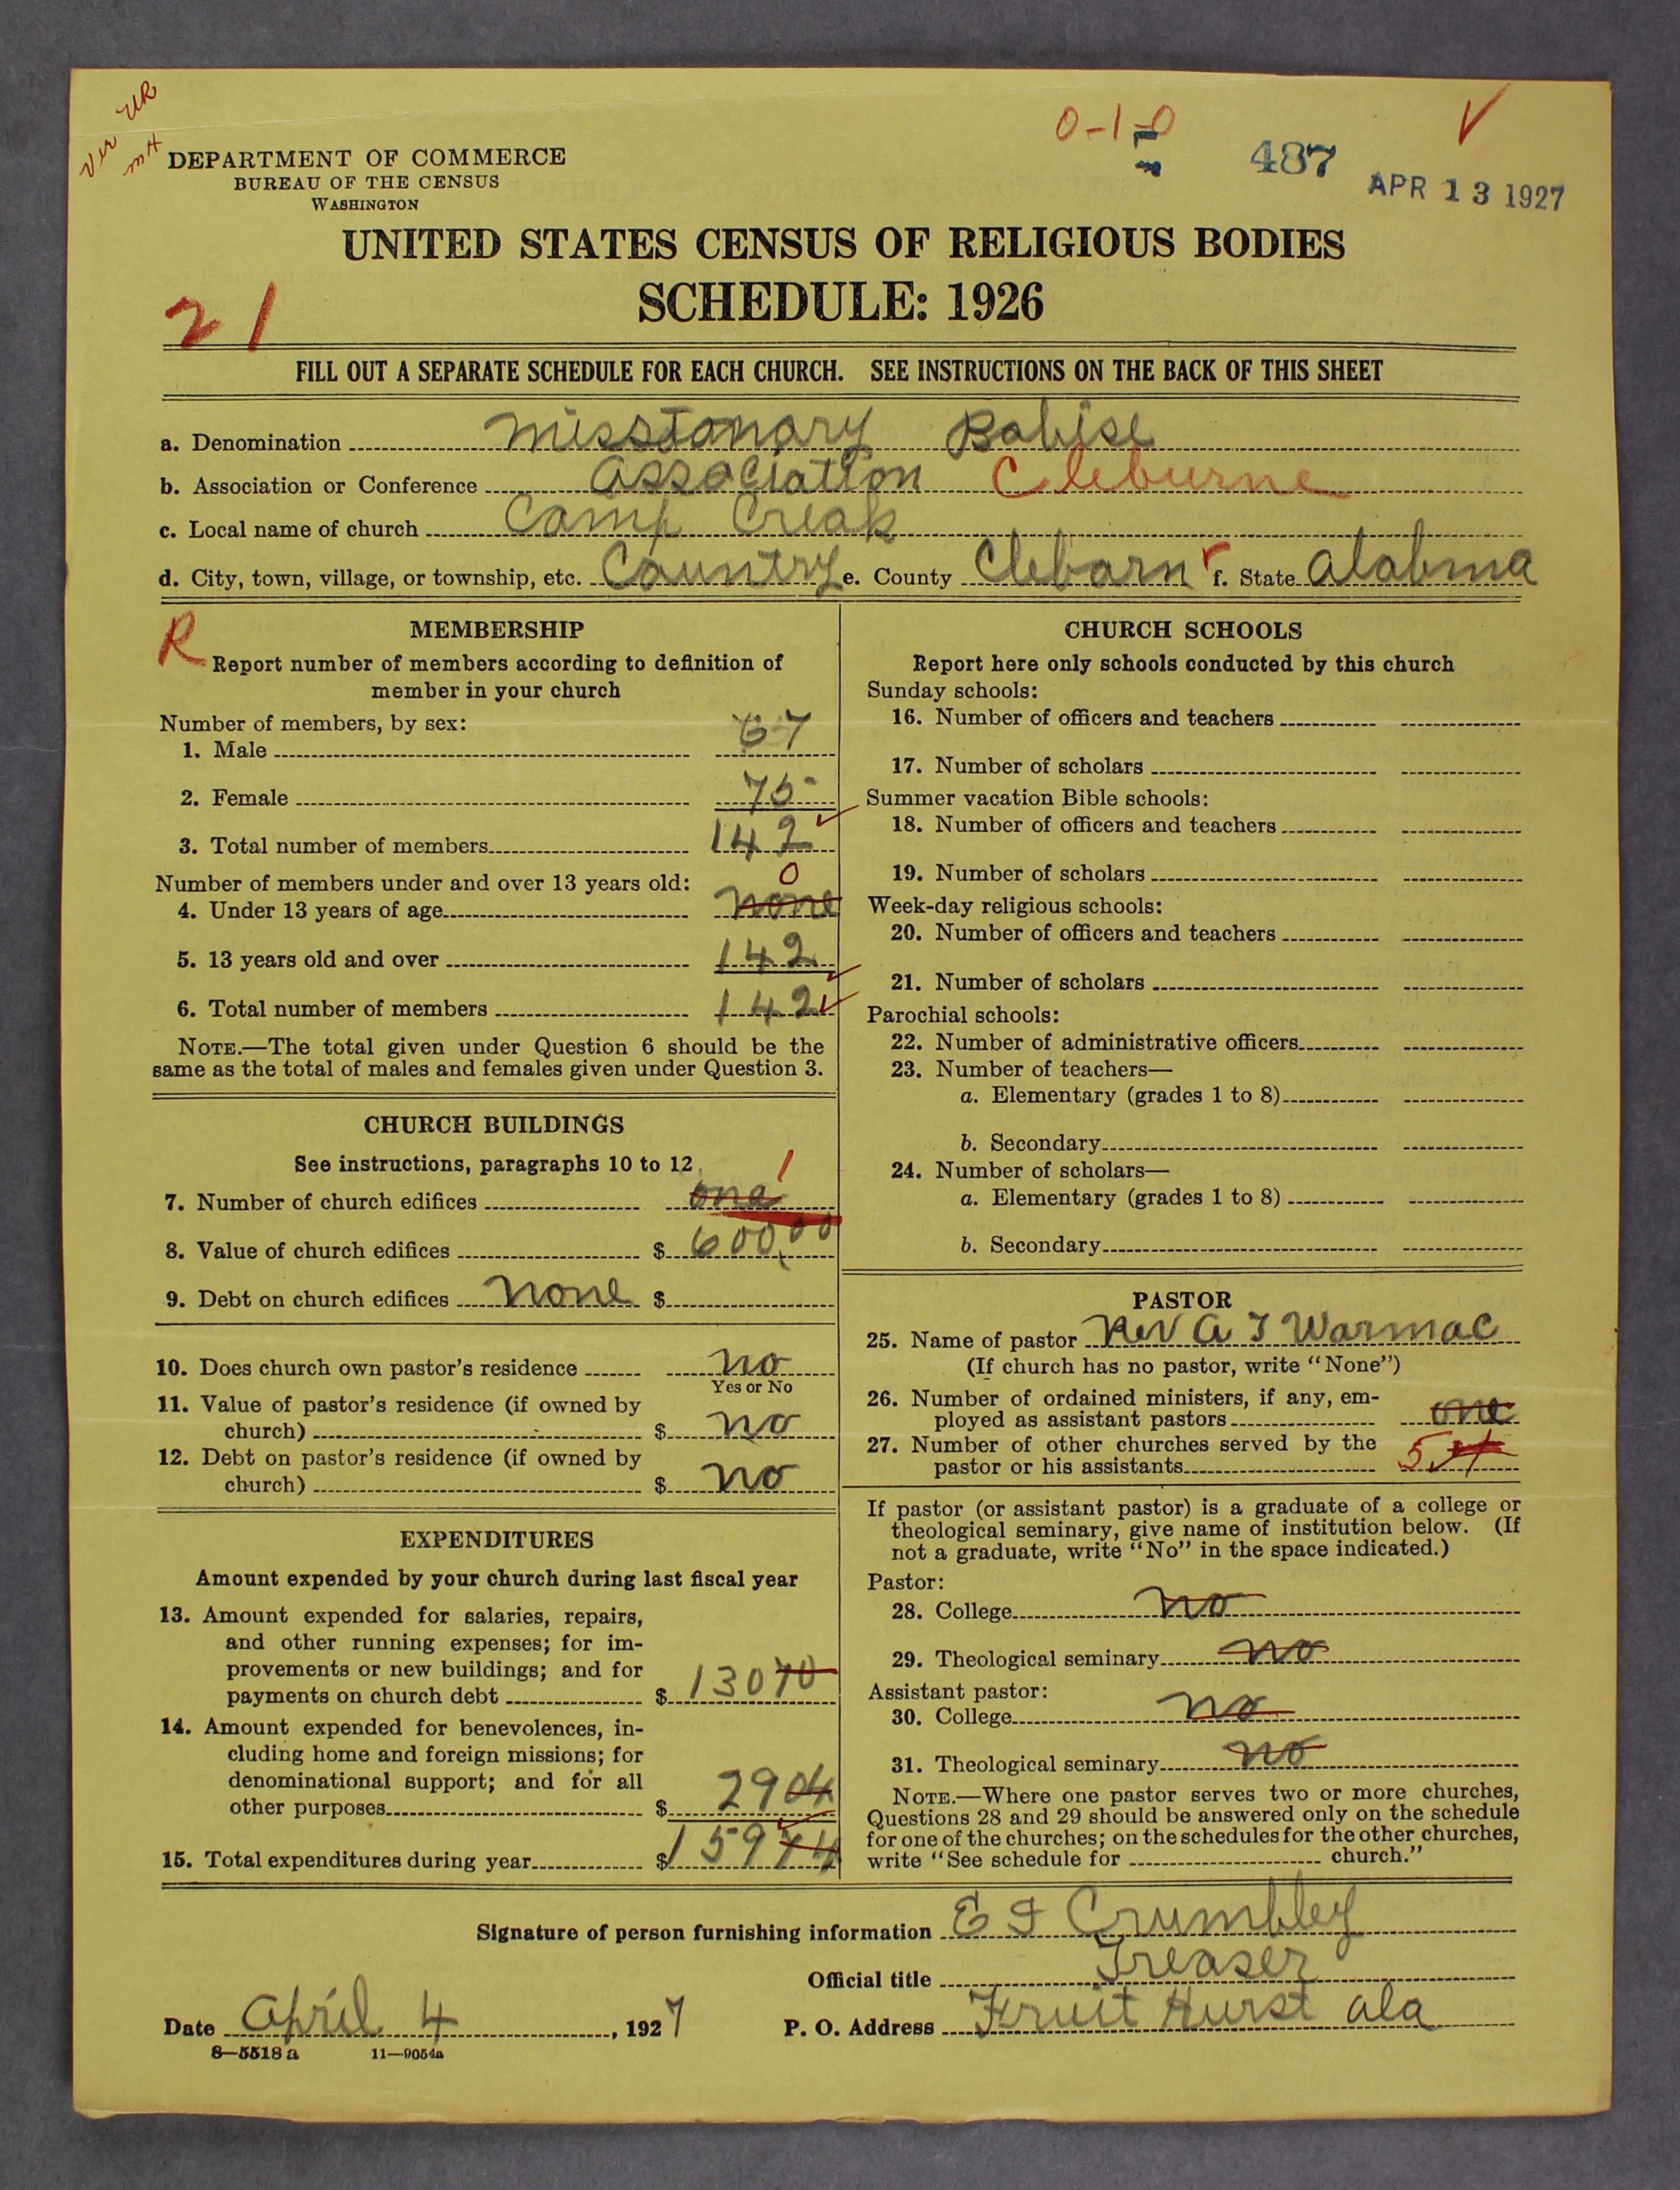 ver UR
mH
DEPARTMENT OF COMMERCE
BUREAU OF THE CENSUS
WASHINGTON
0-1-0
487
APR 13 1927
UNITED STATES CENSUS OF RELIGIOUS BODIES
SCHEDULE: 1926
21
FILL OUT A SEPARATE SCHEDULE FOR EACH CHURCH. SEE INSTRUCTIONS ON THE BACK OF THIS SHEET
a. Denomination Missionary Babise
b. Association or Conference Association Cleburne
c. Local name of church Camp Creak
d. City, town, village, or township, etc. Country e. County Clebarn f. State Alabma
R
MEMBERSHIP
Report number of members according to definition of
member in your church
Number of members, by sex:
1. Male 67
2. Female 75
3. Total number of members 142
Number of members under and over 13 years old: 0
4. Under 13 years of age none
5. 13 years old and over 142
6. Total number of members 142
NOTE.—The total given under Question 6 should be the
same as the total of males and females given under Question 3.
CHURCH BUILDINGS
See instructions, paragraphs 10 to 12 1
7. Number of church edifices one
8. Value of church edifices $ 600,00
9. Debt on church edifices none $
10. Does church own pastor's residence no
Yes or No
11. Value of pastor's residence (if owned by
church) $ no
12. Debt on pastor's residence (if owned by
church) $ no
EXPENDITURES
Amount expended by your church during last fiscal year
13. Amount expended for salaries, repairs,
and other running expenses; for im-
provements or new buildings; and for
payments on church debt $ 13070
14. Amount expended for benevolences, in-
cluding home and foreign missions; for
denominational support; and for all
other purposes $ 2904
15. Total expenditures during year $ 15974
CHURCH SCHOOLS
Report here only schools conducted by this church
Sunday schools:
16. Number of officers and teachers
17. Number of scholars
Summer vacation Bible schools:
18. Number of officers and teachers
19. Number of scholars
Week-day religious schools:
20. Number of officers and teachers
21. Number of scholars
Parochial schools:
22. Number of administrative officers
23. Number of teachers—
a. Elementary (grades 1 to 8)
b. Secondary
24. Number of scholars—
a. Elementary (grades 1 to 8)
b. Secondary
PASTOR
25. Name of pastor Rev A J Warmac
(If church has no pastor, write "None")
26. Number of ordained ministers, if any, em-
ployed as assistant pastors one
27. Number of other churches served by the
pastor or his assistants 5
If pastor (or assistant pastor) is a graduate of a college or
theological seminary, give name of institution below. (If
not a graduate, write "No" in the space indicated.)
Pastor:
28. College no
29. Theological seminary no
Assistant pastor:
30. College no
31. Theological seminary no
NOTE.—Where one pastor serves two or more churches,
Questions 28 and 29 should be answered only on the schedule
for one of the churches; on the schedules for the other churches,
write "See schedule for church."
Signature of person furnishing information E F Crumbley
Official title Treaser
Date April 4, 1927 P. O. Address Fruit Hurst ala
8—5518 a 11—9054a